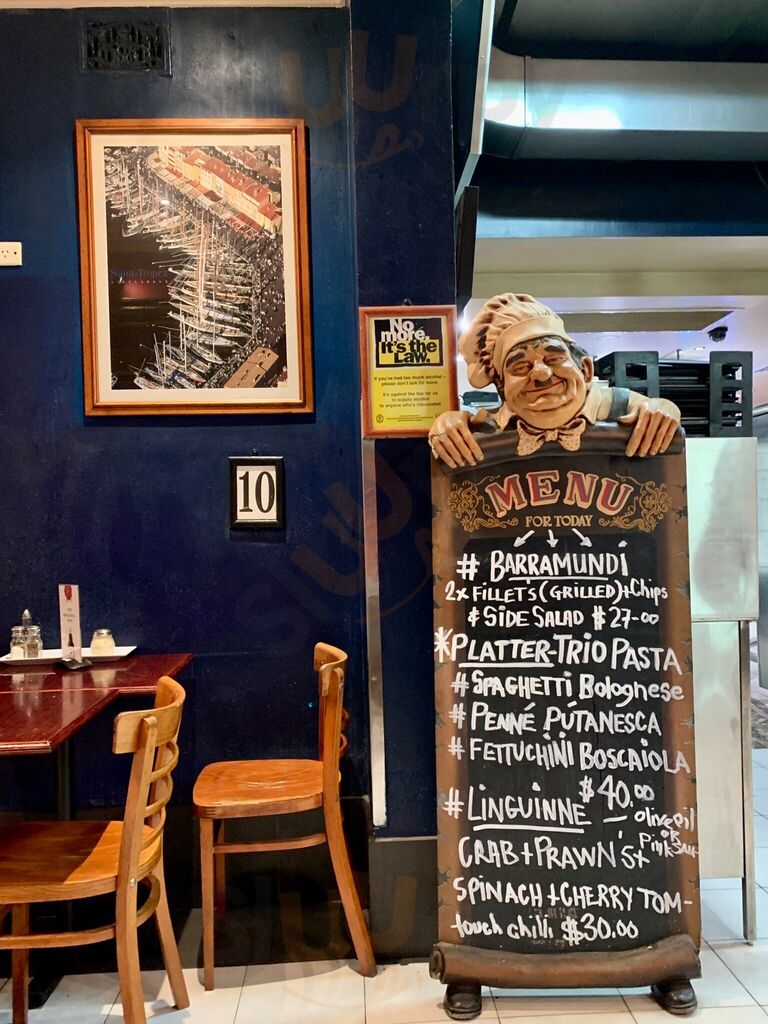 Saint-Tropez
No
more.
It's the
Law.
If you've had too much alcohol -
please don't ask for more.
It's against the law for us
to supply alcohol
to anyone who's intoxicated.
10
MENU
FOR TODAY
# BARRAMUNDI
2x FILLETS (GRILLED)+Chips
& SIDE SALAD $27-00
*PLATTER-TRIO PASTA
# SPAGHETTi Bolognese
# PENNÉ PUTANESCA
# FETTUCHiNi BOSCAiOLA
$40.00
# LINGUINNE — olive oil
OR
Pink Sauce
CRAB + PRAWN'S +
SPINACH + CHERRY TOM-
touch chilli $30.00